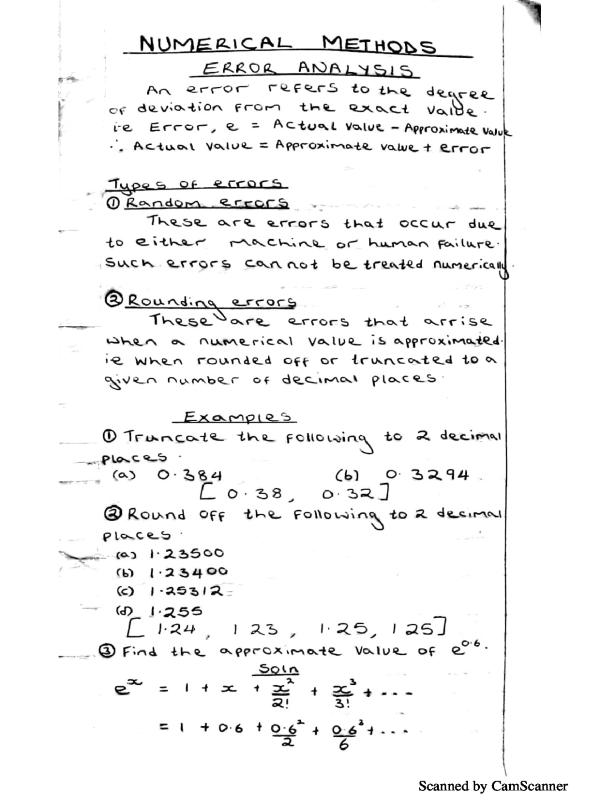 NUMERICAL METHODS
ERROR ANALYSIS
An error refers to the degree
of deviation from the exact value.
ie Error, e = Actual value - Approximate value
∴ Actual value = Approximate value + error
Types of errors
① Random errors
These are errors that occur due
to either machine or human failure.
Such errors cannot be treated numerically.
② Rounding errors
These are errors that arrise
when a numerical value is approximated.
ie when rounded off or truncated to a
given number of decimal places.
Examples
① Truncate the following to 2 decimal
places.
(a) 0.384 (b) 0.3294
[0.38, 0.32]
② Round off the following to 2 decimal
places.
(a) 1.23500
(b) 1.23400
(c) 1.25312
(d) 1.255
[1.24, 1.23, 1.25, 1.25]
③ Find the approximate value of e^0.6.
Soln
e^x = 1 + x + x^2/2! + x^3/3! + ...
= 1 + 0.6 + 0.6^2/2 + 0.6^3/6 + ...
Scanned by CamScanner